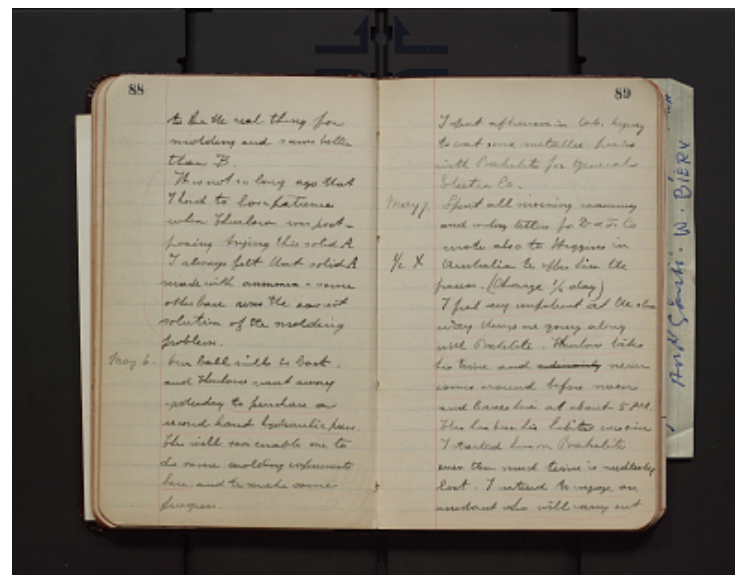 88
to be the real thing for
molding and runs better
than B.
It is not so long ago that
I had to lose patience
when Thurlow was post-
poning trying this solid A
I always felt that solid A
made with ammonia or some
other base was the
solution of the molding
problem.
May 6. Our ball mill is lost.
and Thurlow went away
yesterday to purchase a
second hand hydraulic press.
This will soon enable me to
do some molding experiments
here and to make some
progress.
89
I spent afternoon in lab. trying
to coat some metallic pieces
with Bakelite for General
Electric Co.
May 7. Spent all morning
and writing letters for D & F. Co
1/2 X wrote also to Higgins in
Australia to offer him the
process. (Charge 1/2 day)
I feel very impatient at the slow
way things are going along
with Bakelite. Thurlow takes
his time and never
comes around before noon
and leaves here at about 5 P.M.
This has been his habits ever since
I started him on Bakelite
even then much time is needlessly
lost. I intend to engage an
assistant who will carry out
And Gösti W. BIERY